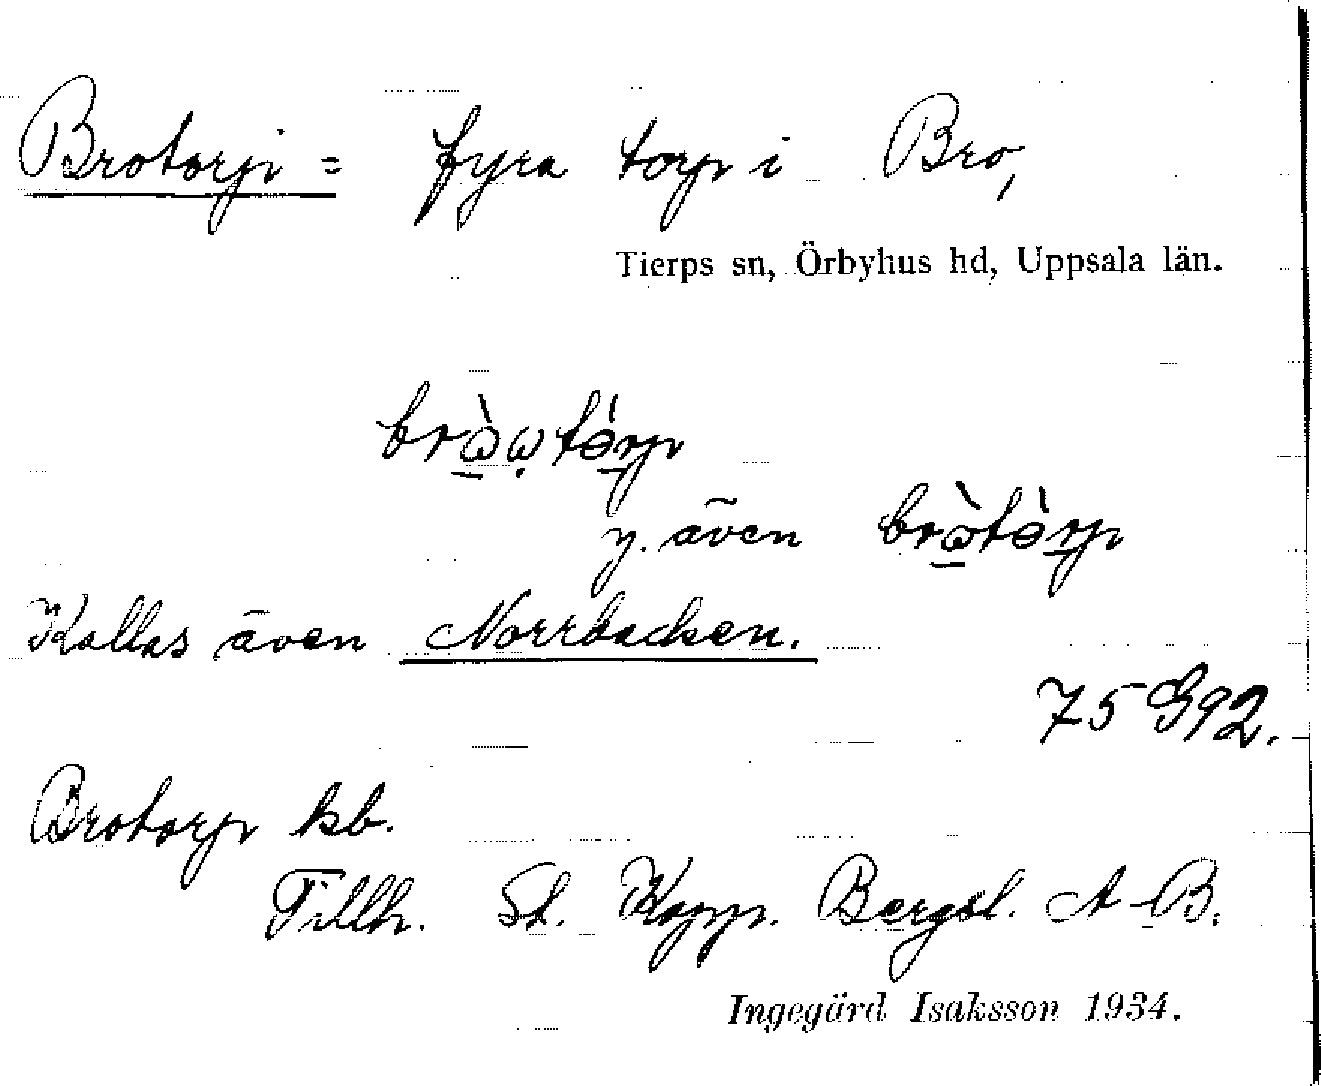 Brotorp = fyra torp i Bro,
Tierps sn, Örbyhus hd, Uppsala län.
brὼω̣tə́rp
y. även brὼtə̀rp
Kallas även Norrbacken.
75 G92.
Brotorp kb.
Tillh. St. Kopp. Bergsl. A-B.
Ingegärd Isaksson 1934.